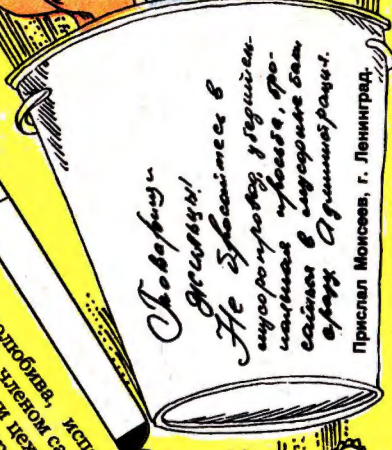 Товарищи
жильцы!
Не бросайтесь в
мусоропровод,
просьба, бро-
сайтесь в мусорные баки
сразу. Администрация.
Прислал Моисеев, г. Ленинград.
олюбива, исп
членом са
и цех